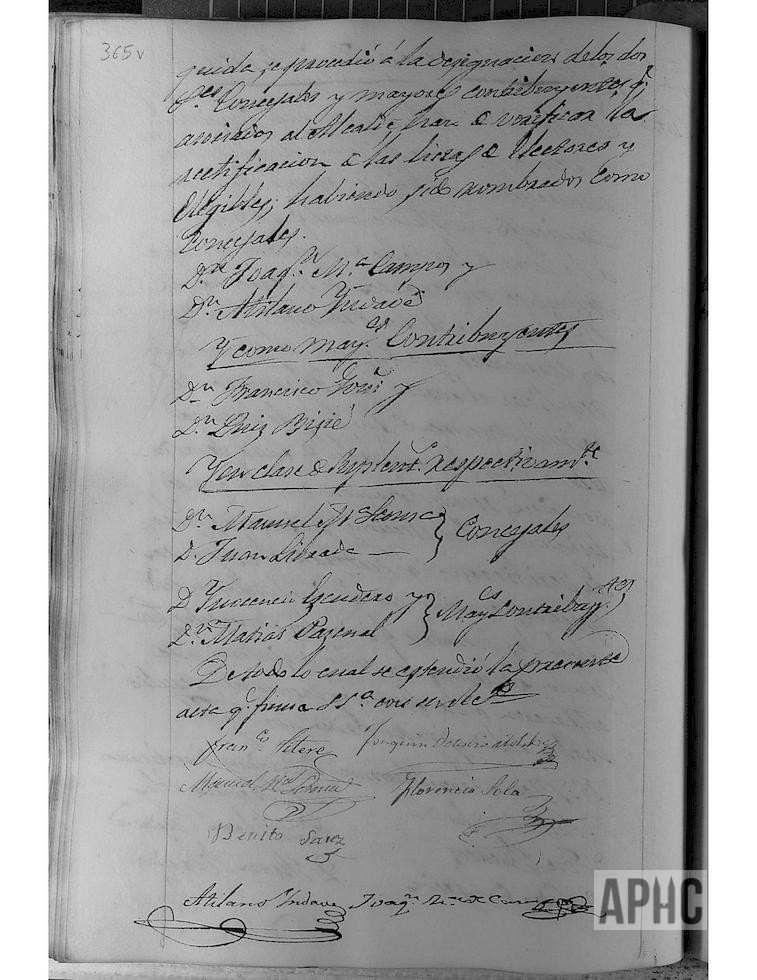 365v
guida se procedió á la designacion de los dos
Sres Concejales y mayores contribuyentes qe
asociados al Alcalde han de verificar la
rectificacion de las listas de Electores y
Elegibles, habiendo sido nombrados como
Concejales.
Dn Joaqn Ma Campos y
Dn Atilano Yndave
Y como mayes Contribuyentes
Dn Francisco y
Dn Luis
Y en clase de Suplents respectivamte
Dn Manuel
D. Juan
Concejales
D Ynocencio Escudero y
Dn Matias Pascual
Mayes Contribuytes
De todo lo cual se estendió la presente
acta qe firma SSa con
Franco
Joaquin
Manuel
Florencio Sola
Benito Saez
Atilano Yndave
Joaqn Ma de Campos
APHC